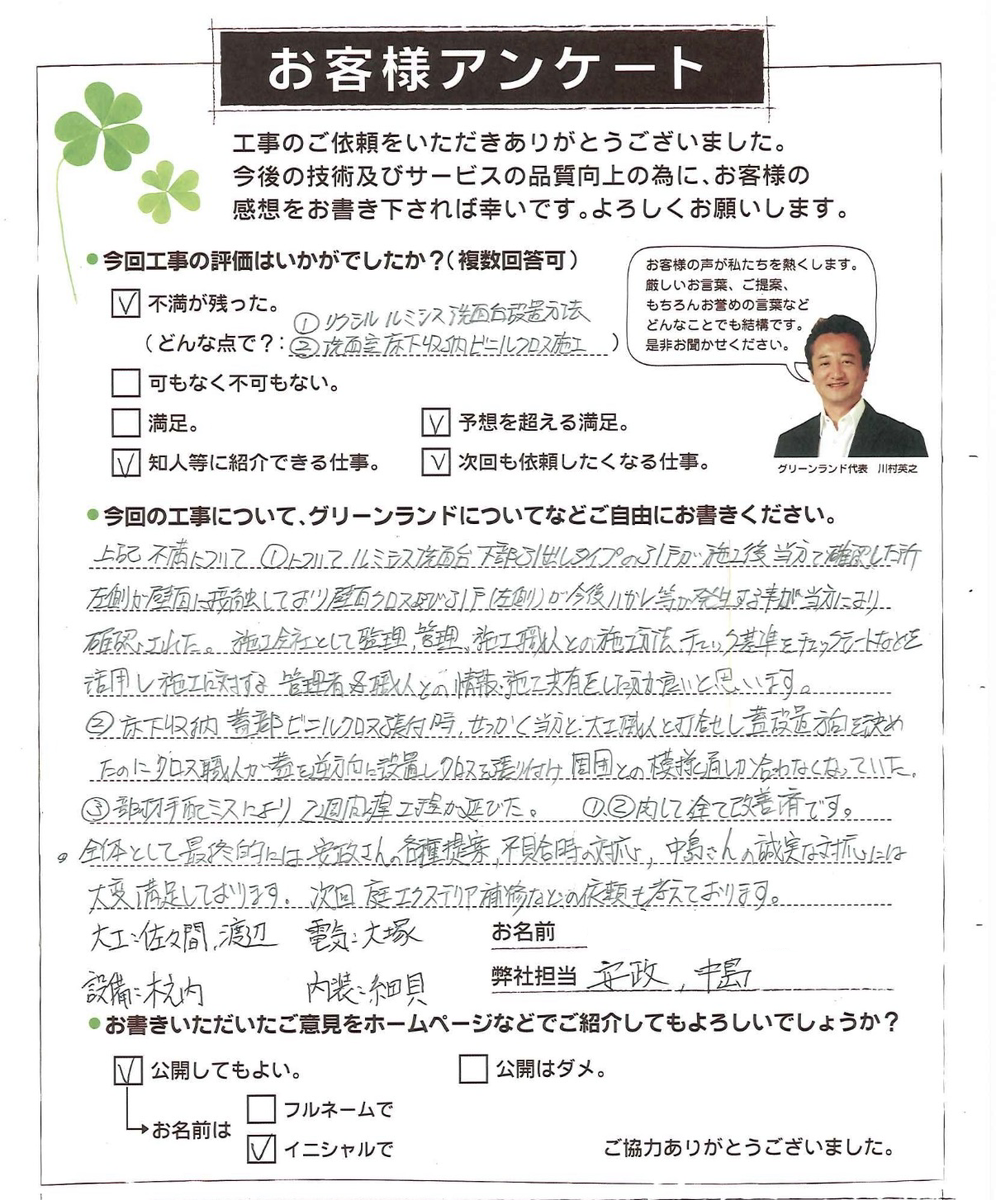 お客様アンケート
工事のご依頼をいただきありがとうございました。
今後の技術及びサービスの品質向上の為に、お客様の
感想をお書き下されば幸いです。よろしくお願いします。
●今回工事の評価はいかがでしたか?(複数回答可)
お客様の声が私たちを熱くします。
厳しいお言葉、ご提案、
もちろんお誉めの言葉など
どんなことでも結構です。
是非お聞かせください。
不満が残った。
(どんな点で?:①リクシル ルミシス洗面台設置方法
②洗面室床下収納ビニルクロス施工)
可もなく不可もない。
満足。
予想を超える満足。
知人等に紹介できる仕事。
次回も依頼したくなる仕事。
グリーンランド代表 川村英之
●今回の工事について、グリーンランドについてなどご自由にお書きください。
上記 不満について ①について ルミシス洗面台 下部引出しタイプの引戸が施工後当方で確認した所
左側が壁面に接触しており壁面クロス及び引戸(左側)が今後ハガレ等が発生する事が当方により
確認された。施工会社として監理、管理、施工職人との施工方法、チェック基準をチェックシートなどを
活用し施工に対する 管理者各職人との情報、施工共有をした方が良いと思います。
②床下収納 蓋部ビニルクロス張付時、せっかく当方と大工職人と打合せし蓋設置方向を決め
たのにクロス職人が蓋を逆方向に設置しクロスを張り付け 周囲との模様と通しが合わなくなっていた。
③部材手配ミスにより 2週間程工程が延びた。 ①②関して全て改善済です。
。全体として最終的には 安政さんの各種提案、不具合時の対応、中島さんの誠実な対応には
大変満足しております。次回 庭エクステリア補修などの依頼も考えております。
大工:佐々間、渡辺 電気:大塚
お名前
設備:木内 内装:細貝
弊社担当 安政、中島
●お書きいただいたご意見をホームページなどでご紹介してもよろしいでしょうか?
公開してもよい。
公開はダメ。
お名前は
フルネームで
イニシャルで
ご協力ありがとうございました。